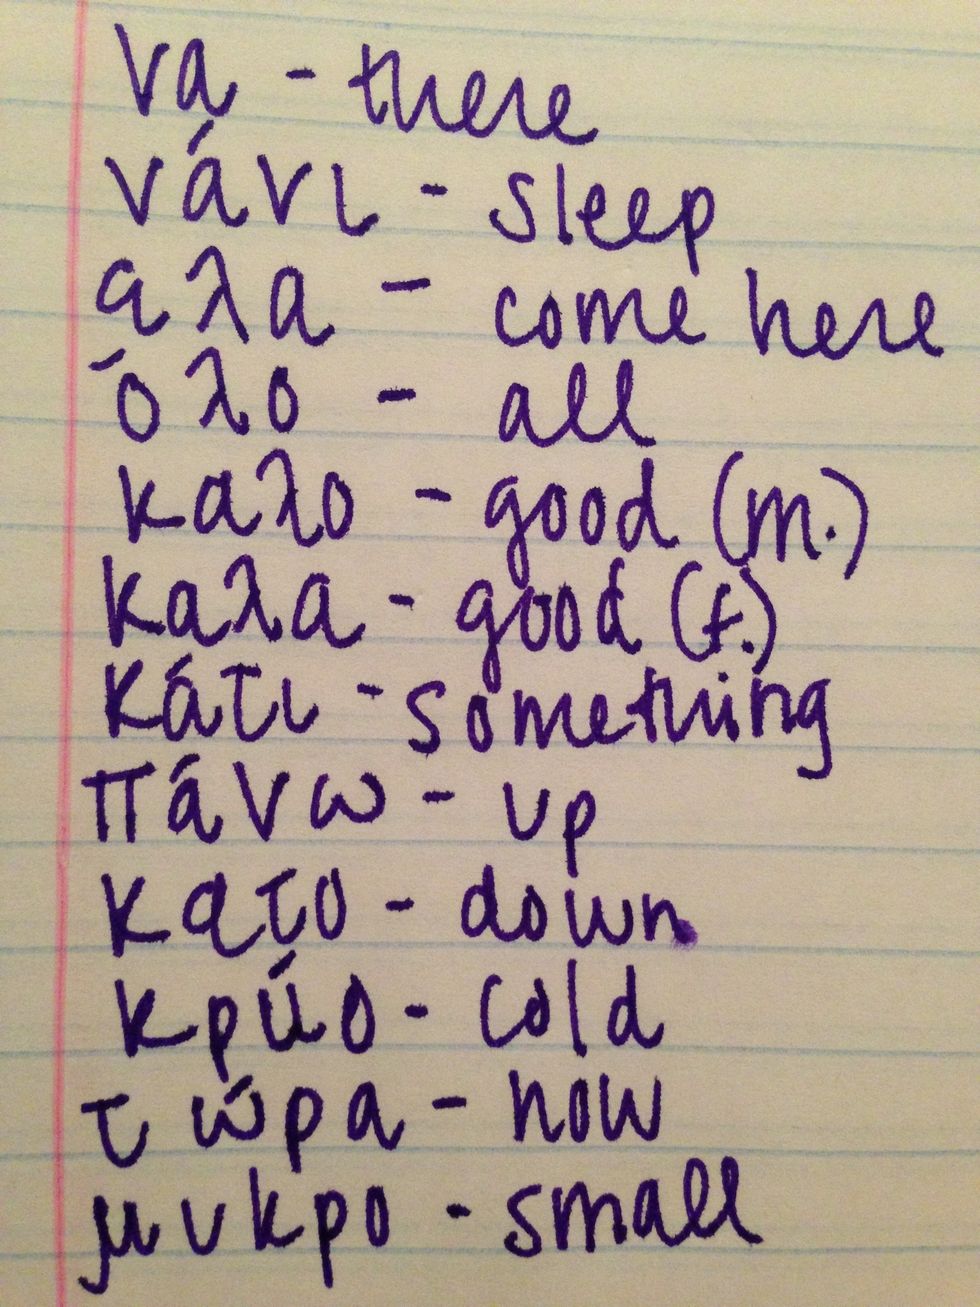 να - there
νάνι - sleep
αλα - come here
όλο - all
καλο - good (m.)
καλα - good (f.)
κάτι - something
πάνω - up
κατο - down
κρύο - cold
τώρα - now
μυκρο - small